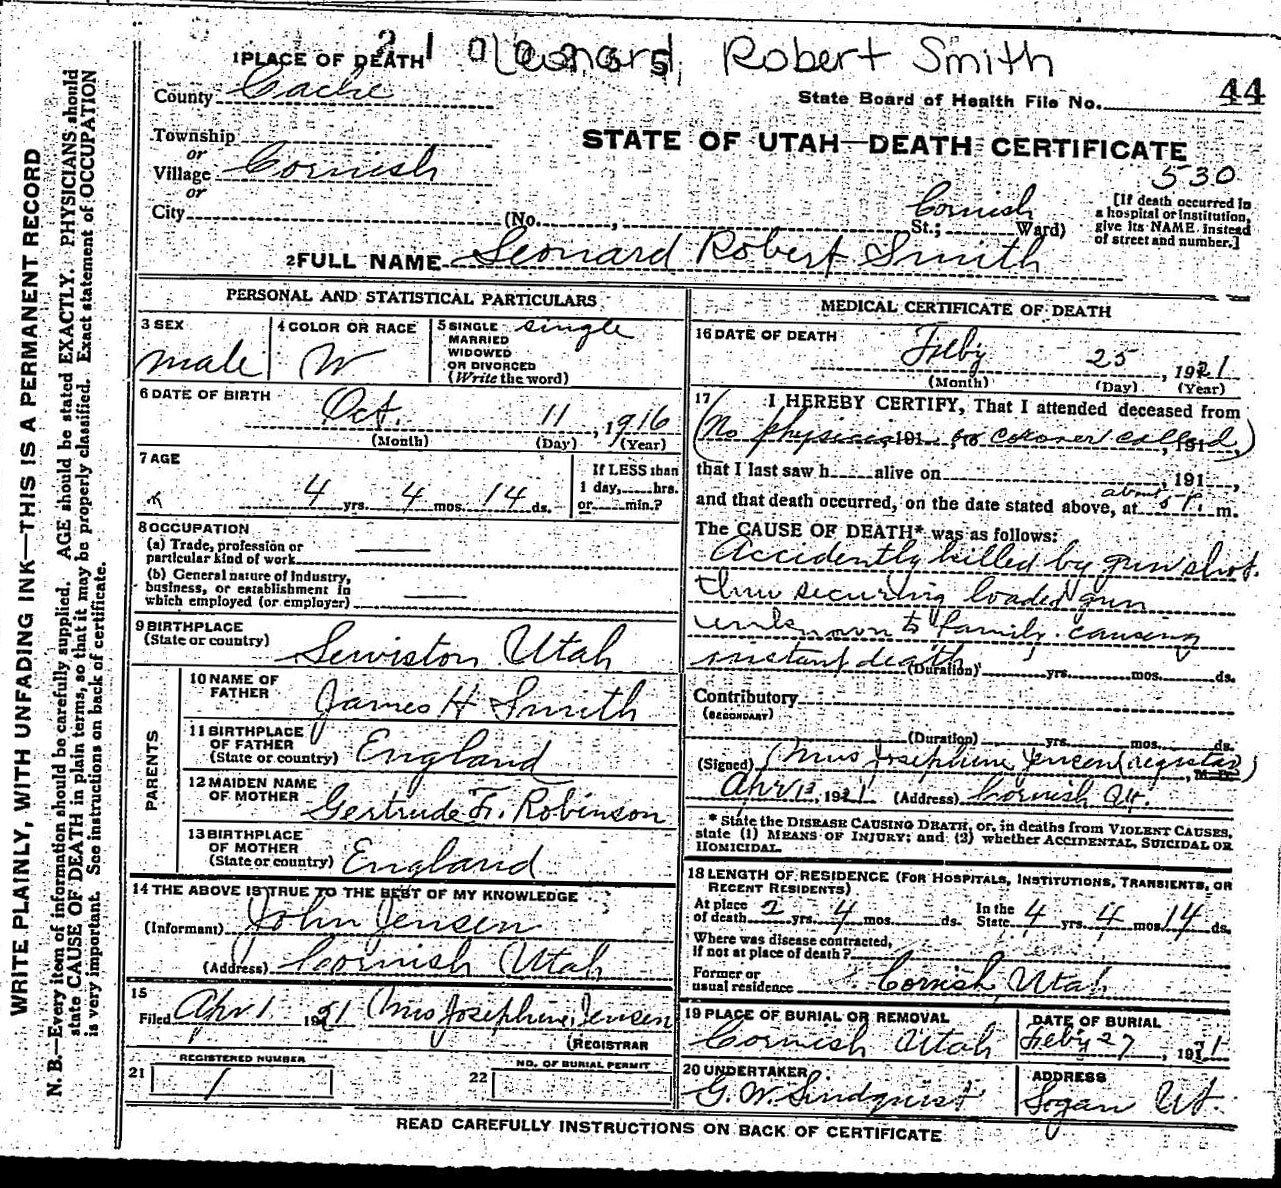 21 0
Leonard Robert Smith
1 PLACE OF DEATH
County Cache
State Board of Health File No. 44
Township
or
Village Cornish
or
City
STATE OF UTAH—DEATH CERTIFICATE
530
(No. , Cornish St.; Ward)
[If death occurred in
a hospital or institution,
give its NAME instead
of street and number.]
2 FULL NAME Leonard Robert Smith
PERSONAL AND STATISTICAL PARTICULARS
3 SEX
male
4 COLOR OR RACE
W
5 SINGLE
MARRIED
WIDOWED
OR DIVORCED
(Write the word)
single
6 DATE OF BIRTH
Oct. 11, 1916
(Month) (Day) (Year)
7 AGE
4 yrs. 4 mos. 14 ds.
If LESS than
1 day, hrs.
or min.?
8 OCCUPATION
(a) Trade, profession or
particular kind of work
(b) General nature of Industry,
business, or establishment in
which employed (or employer)
9 BIRTHPLACE
(State or country) Lewiston Utah
PARENTS
10 NAME OF
FATHER James H Smith
11 BIRTHPLACE
OF FATHER
(State or country) England
12 MAIDEN NAME
OF MOTHER Gertrude F. Robinson
13 BIRTHPLACE
OF MOTHER
(State or country) England
14 THE ABOVE IS TRUE TO THE BEST OF MY KNOWLEDGE
(Informant) John Jensen
(Address) Cornish Utah
15
Filed Apr 1 1921 Mrs Josephine Jensen
(REGISTRAR
REGISTERED NUMBER
21 1
NO. OF BURIAL PERMIT
22
MEDICAL CERTIFICATE OF DEATH
16 DATE OF DEATH
Feby 25, 1921
(Month) (Day) (Year)
17 I HEREBY CERTIFY, That I attended deceased from
(No physician 191 , or coroner called, 191 ,)
that I last saw h alive on , 191 ,
and that death occurred, on the date stated above, at about 5 P. m.
The CAUSE OF DEATH* was as follows:
Accidently killed by gun shot.
thru securing loaded gun
unknown to family. causing
instant death. (Duration) yrs. mos. ds.
Contributory
(SECONDARY)
(Duration) yrs. mos. ds.
(Signed) (Mrs Josephine Jensen (registar), M.D.
Apr 1, 1921 (Address) Cornish Ut.
* State the DISEASE CAUSING DEATH, or, in deaths from VIOLENT CAUSES,
state (1) MEANS OF INJURY; and (2) whether ACCIDENTAL, SUICIDAL OR
HOMICIDAL.
18 LENGTH OF RESIDENCE (FOR HOSPITALS, INSTITUTIONS, TRANSIENTS, OR
RECENT RESIDENTS)
At place
of death 2 yrs. 4 mos. ds. In the
State 4 yrs. 4 mos. 14 ds.
Where was disease contracted,
if not at place of death?
Former or
usual residence Cornish, Utah
19 PLACE OF BURIAL OR REMOVAL
Cornish Utah
DATE OF BURIAL
Feby 27, 1921
20 UNDERTAKER
G. W. Lindquist
ADDRESS
Logan Ut.
READ CAREFULLY INSTRUCTIONS ON BACK OF CERTIFICATE
WRITE PLAINLY, WITH UNFADING INK—THIS IS A PERMANENT RECORD
N. B.—Every item of information should be carefully supplied. AGE should be stated EXACTLY. PHYSICIANS should
state CAUSE OF DEATH in plain terms, so that it may be properly classified. Exact statement of OCCUPATION
is very important. See instructions on back of certificate.